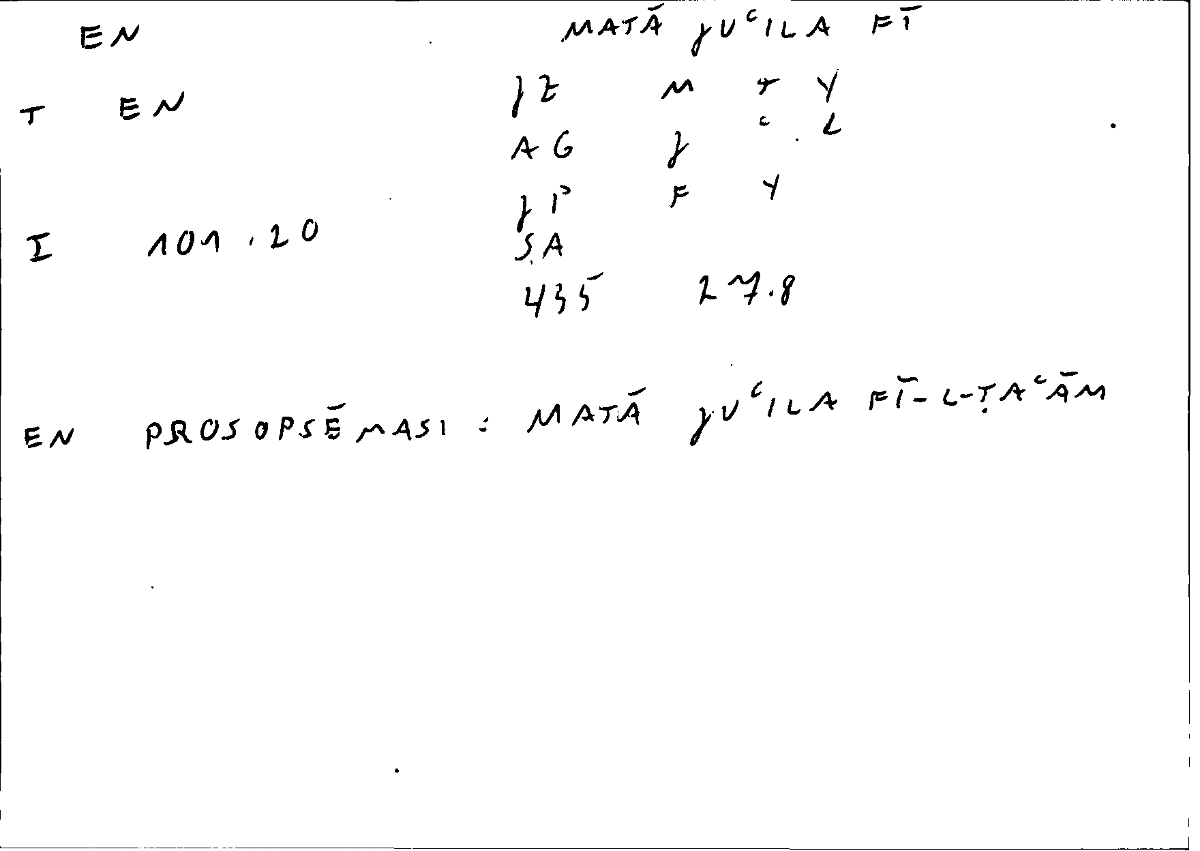 EN MATĀ ȷUᶜILA FĪ
T EN ȷZ M T Y
AG ȷ ᶜ L
ȷP F Y
I 101.20 S.A
435 27.8
EN PROSOPSĒMASI : MATĀ ȷUᶜILA FĪ-L-ṬAᶜĀM